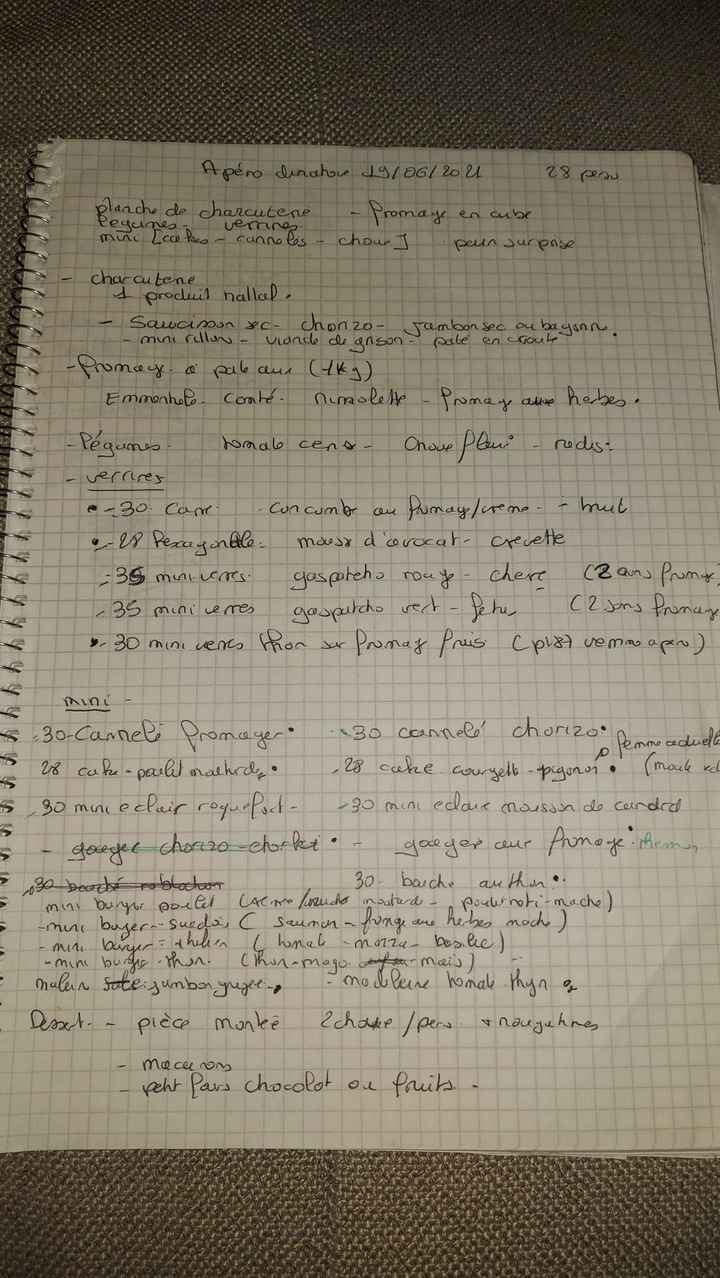 Apéro dinatoire 19/06/2021 28 pers
planche de charcuterie - fromage en cube
légumes - verrines
mini [cakes - cannelés - choux] pain surprise
- charcuterie
1 produit hallal.
- Saucisson sec - chorizo - Jambon sec ou bayonne.
- mini rillons - viande de grison - paté en croute
- fromage à pate dur (1kg)
Emmenthale - comté - mimolette - fromage aux herbes.
- légumes - tomate ceris - choux fleur - radis
- verrines
- 30 Carré - concombre au fromage/creme - fruit
- 28 hexagonale - mousse d'avocat - crevette
- 35 mini verres - gaspatcho rouge - chevre (2 sans fromage)
- 35 mini verres gaspatcho vert - feta (2 sans fromage
- 30 mini verres thon sur fromage frais (p187 verrine apero)
mini -
- 30 - Cannelé fromager - 30 cannelé chorizo
28 cake - poulet moutarde - 28 cake courgette - pignon (moule
femme actuelle
- 30 mini eclair roquefort - - 30 mini eclair mousson de canard
- gouger chorizo - - gouger aux fromage
30 bouché roblochon 30 - bouche au thon
mini burger poulet (moutarde - poulet roti - mache)
- mini burger - suedois (saumon - fromage aux herbes mache)
- mini burger - italien (tomate - mozza - basilic)
- mini burger - thon. (thon - mayo - mais)
jambon gruyere - madeleine tomate thym
Dessert - - pièce montée 2 choux / pers + nougatines
- macarons
- petit fours chocolat ou fruits -